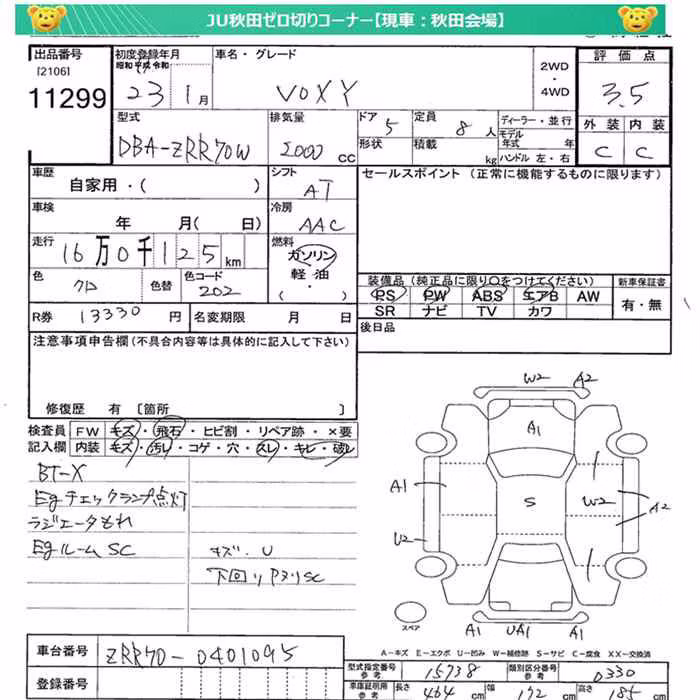 JU秋田ゼロ切りコーナー【現車:秋田会場】
出品番号 初度登録年月 車名・グレード 2WD ・ 4WD 評価点
[2106] 昭和 平成 令和
11299 23 1月 VOXY 3.5
型式 排気量 ドア 定員 ディーラー・並行 外装 内装
DBA-ZRR70W 2000 CC 5 8人 モデル年式 年 C C
形状 積載 kg ハンドル 左・右
車歴 シフト セールスポイント (正常に機能するものに限ります)
自家用・( ) AT
車検 冷房
年 月( 日) AAC
走行 燃料
16万0千125km ガソリン
軽油
・( )
色 色替 色コード
クロ 202
装備品 (純正品に限り〇をつけてください) 新車保証書
PS PW ABS エアB AW 有・無
SR ナビ TV カワ
R券 13330円 名変期限 月 日 後日品
注意事項申告欄(不具合内容等は具体的に記入して下さい)
修復歴 有 [箇所 ]
検査員 FW キズ・飛石・ヒビ割・リペア跡・×要
記入欄 内装 キズ・汚レ・コゲ・穴・スレ・キレ・破レ
BT-X
Egチェックランプ点灯
ラジエータもれ
Egルーム SC キズ・U
下回りアヌリSC
W2 A2
A1
A1 S W2 A2
U2
A1 UA1 A1
スペア
A-キズ E-エクボ U-凹み W-補修跡 S-サビ C-腐食 XX-交換済
車台番号 ZRR70-0401095
登録番号
型式指定番号 参考 15738 類別区分番号 参考 0330
車庫証明用 参考 長さ 464 cm 幅 172 cm 高さ 185 cm